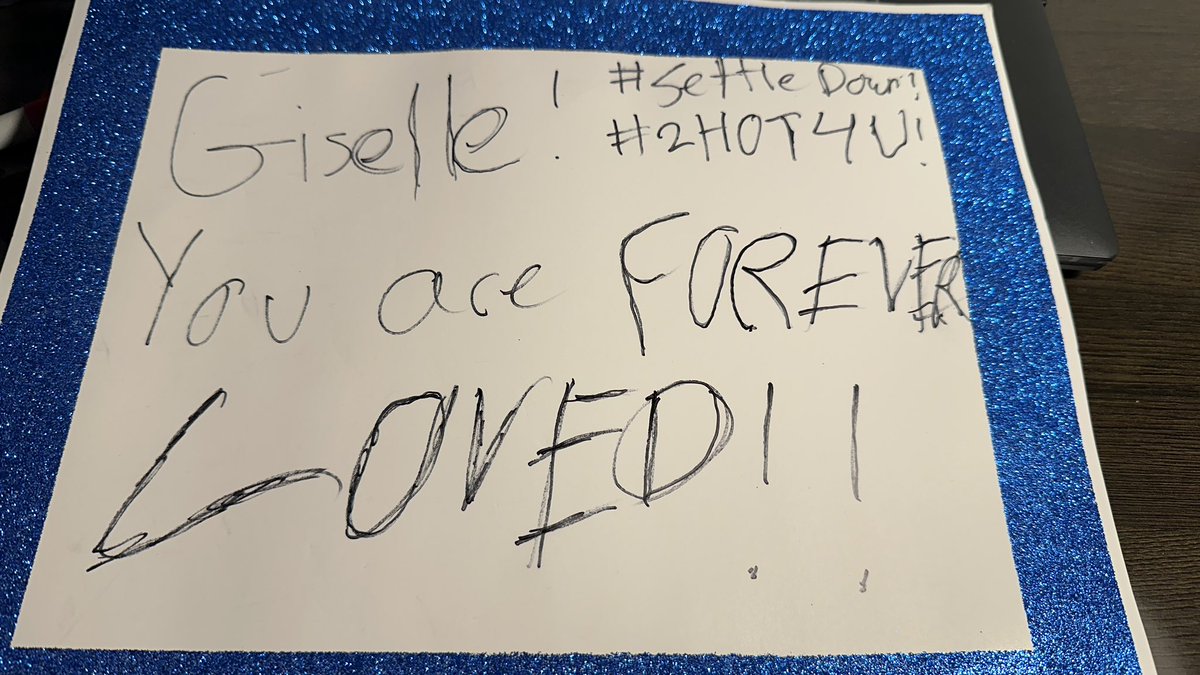 Giselle! #Settle Down!
#2HOT4U!
You are FOREVER
LOVED!!